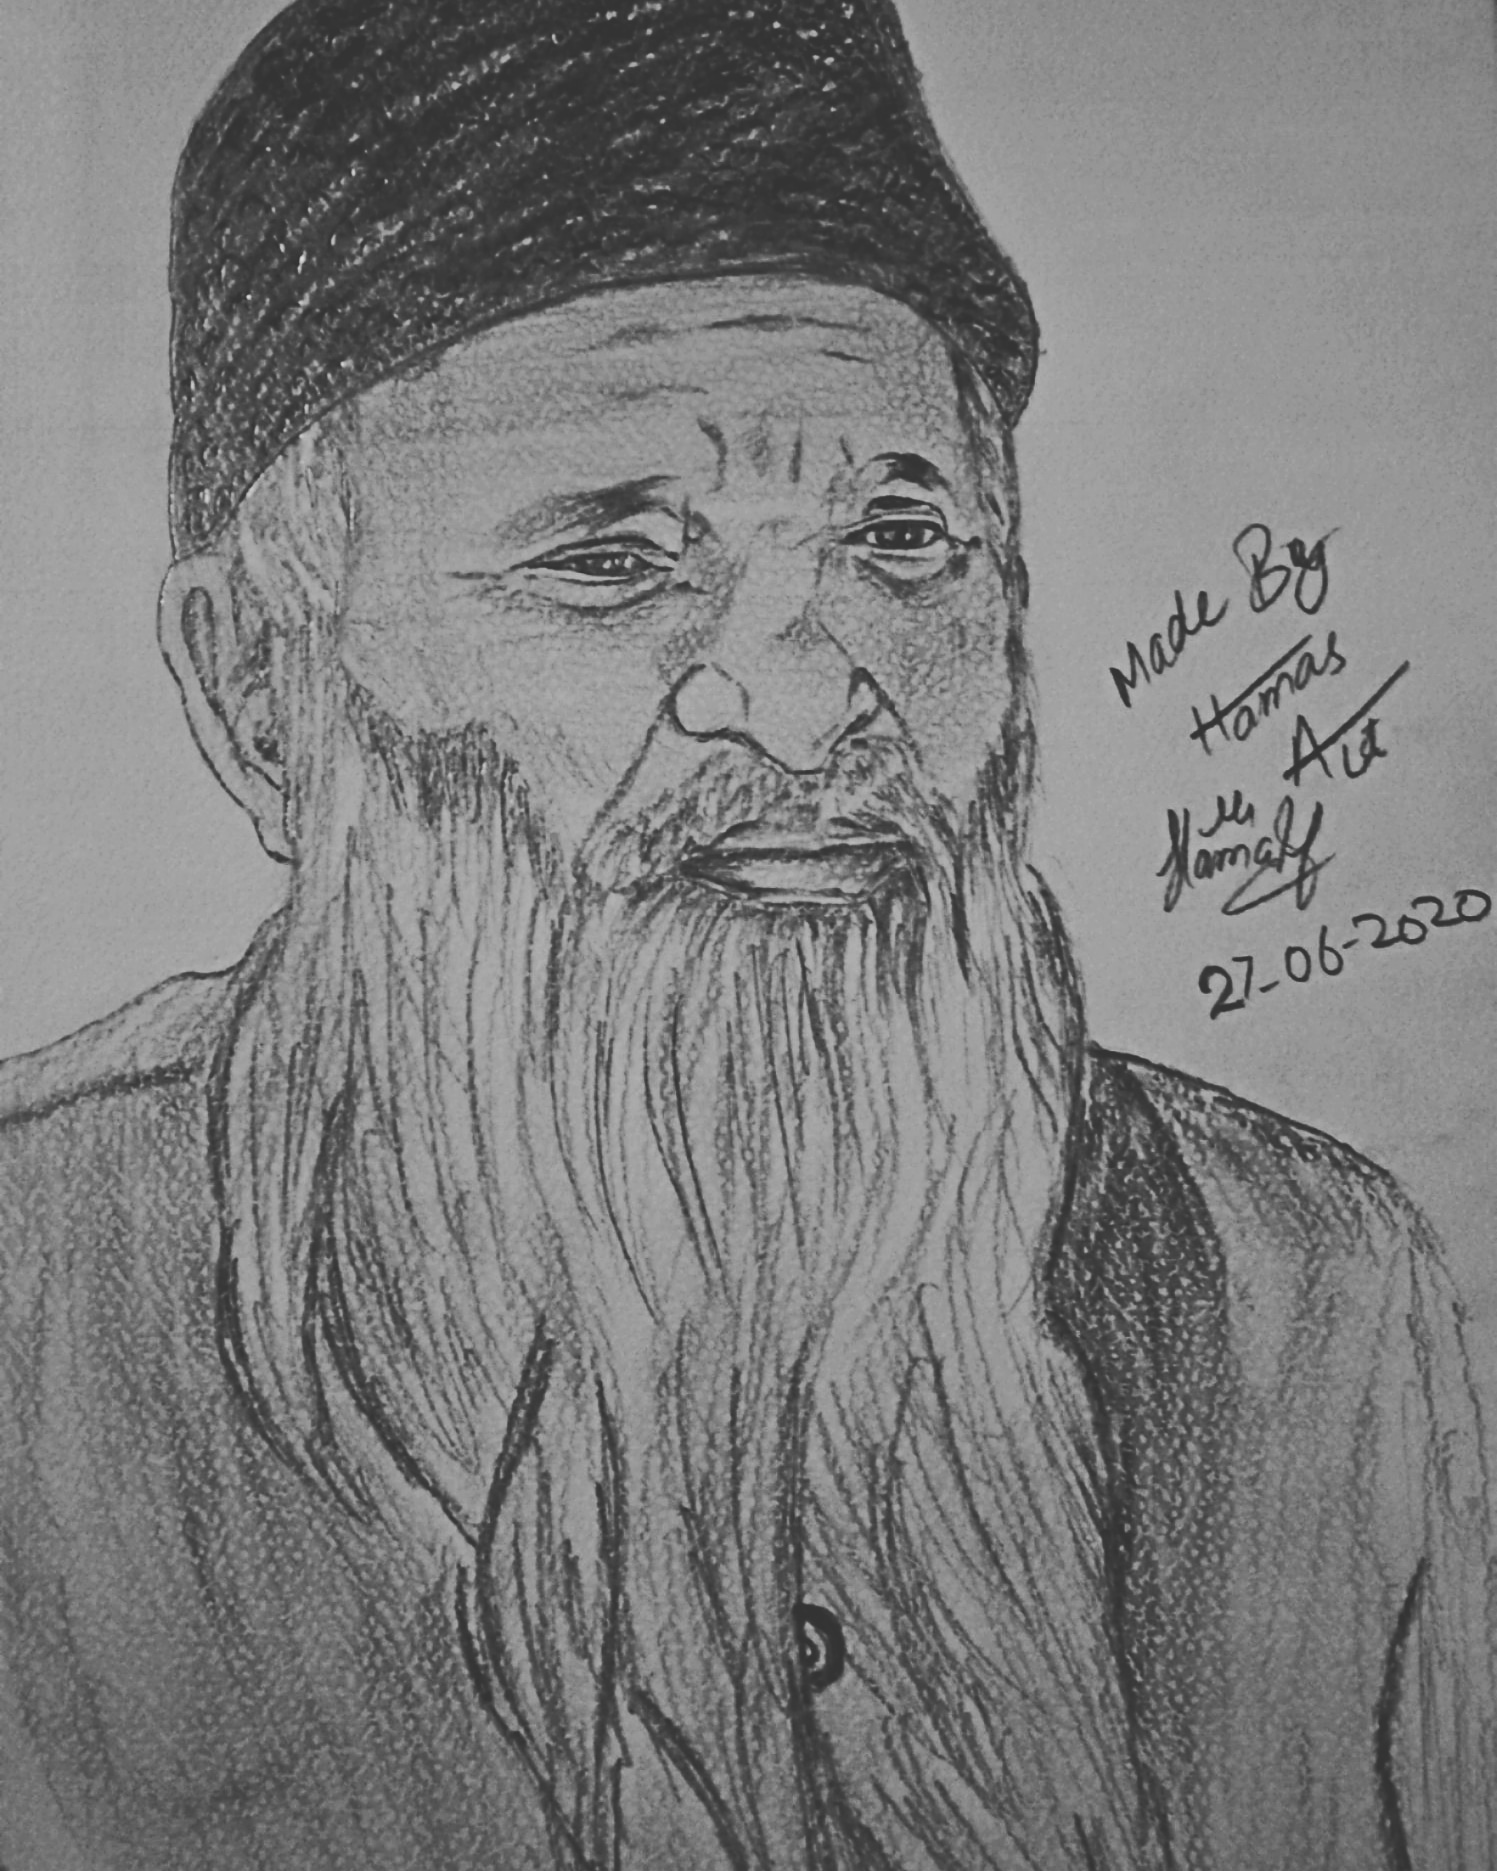 Made By
Hamas
Ali
Hamas
27-06-2020